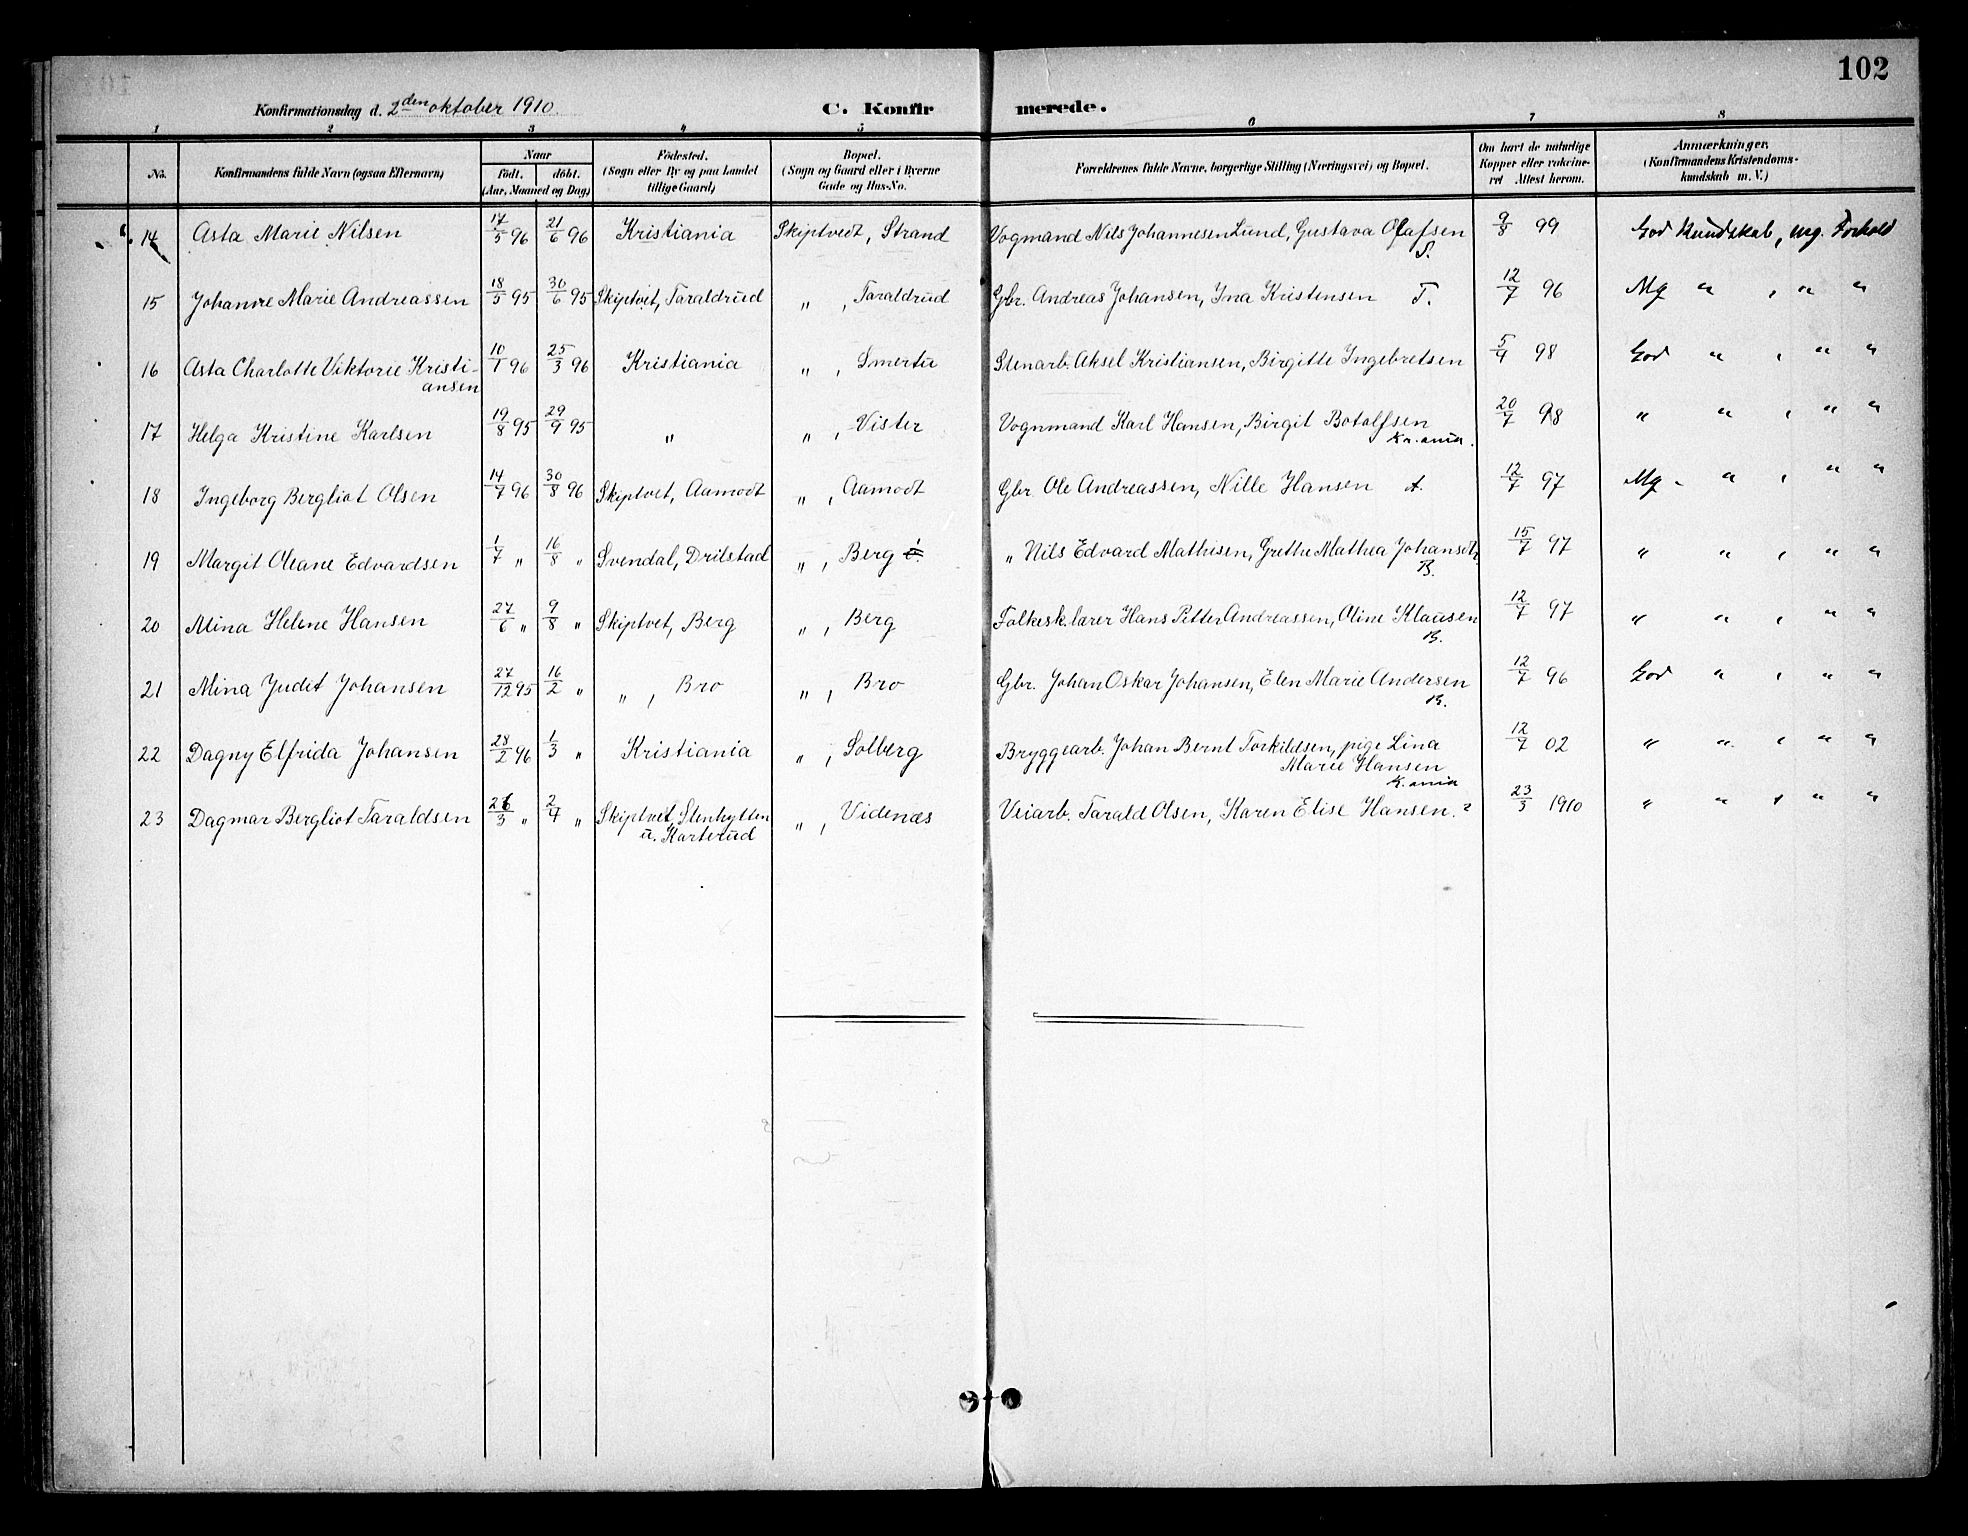 102
Konfirmationsdag d. 2den oktober 1910. C. Konfirmerede.
1 2 3 4 5 6 7 8
No. Konfirmandens fulde Navn (ogsaa Efternavn) Naar Födt. döbt. (Aar, Maaned og Dag) Födested. (Sogn eller By og paa Landet tillige Gaard) Bopæl. (Sogn og Gaard eller i Byerne Gade og Hus-No. Forældrenes fulde Navne, borgerlige Stilling (Næringsvei) og Bopæl. Om havt de naturlige Kopper eller vakcineret Attest herom. Anmærkninger. (Konfirmandens Kristendomskundskab m. V.)
14 Asta Marie Nilsen 17/5 96 21/6 96 Kristiania Skiptvedt, Strand Vogmand Nils Johannesen Lund, Gustava Olafsen S. 9/8 99 God Kundskab, mg. Forhold
15 Johanne Marie Andreassen 18/5 95 30/6 95 Skiptvet, Taraldrud " , Taraldrud Gbr. Andreas Johansen, Ina Kristensen T. 12/7 96 Mg " , " "
16 Asta Charlotte Viktorie Kristi-
ansen 10/1 96 25/3 96 Kristiania " , Smertu Stenarb. Aksel Kristiansen, Birgitte Ingebretsen 5/9 98 God " , " "
17 Helga Kristine Karlsen 19/8 95 29/9 95 " " , Vister Vognmand Karl Hansen, Birgit Botolfsen
Kr.ania. 20/7 98 " " , " "
18 Ingeborg Bergliot Olsen 14/7 96 30/8 96 Skiptvet, Aamodt " , Aamodt Gbr Ole Andreassen, Nille Hansen A. 12/7 97 Mg " , " "
19 Margit Oleane Edvardsen 1/7 " 16/8 " Svendal, Drilstad " , Berg " Nils Edvard Mathisen, Grethe Mathea Johansdt,
B. 15/7 97 " " , " "
20 Mina Helene Hansen 27/6 " 9/8 " Skiptvet, Berg " , Berg Folkesk.lærer Hans Petter Andreassen, Oline Klausen
B. 12/7 97 " " , " "
21 Mina Judit Johansen 27/12 95 16/2 " " , Bro " , Bro Gbr. Johan Oskar Johansen, Elen Marie Andersen
B. 12/7 96 God " , " "
22 Dagny Elfrida Johansen 28/2 96 1/3 " Kristiania " , Solberg Bryggearb. Johan Bernt Torkildsen, pige Lina
Marie Hansen
K.ania 12/7 02 " " , " "
23 Dagmar Bergliot Taraldsen 26/3 " 2/4 " Skiptvet, Stenhytten
u. Karterud " , Videnæs Veiarb. Tarald Olsen, Karen Elise Hansen. 23/3 1910 " " , " "